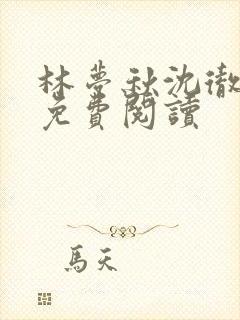 林夢秋沈徹
免費閱讀
馬天